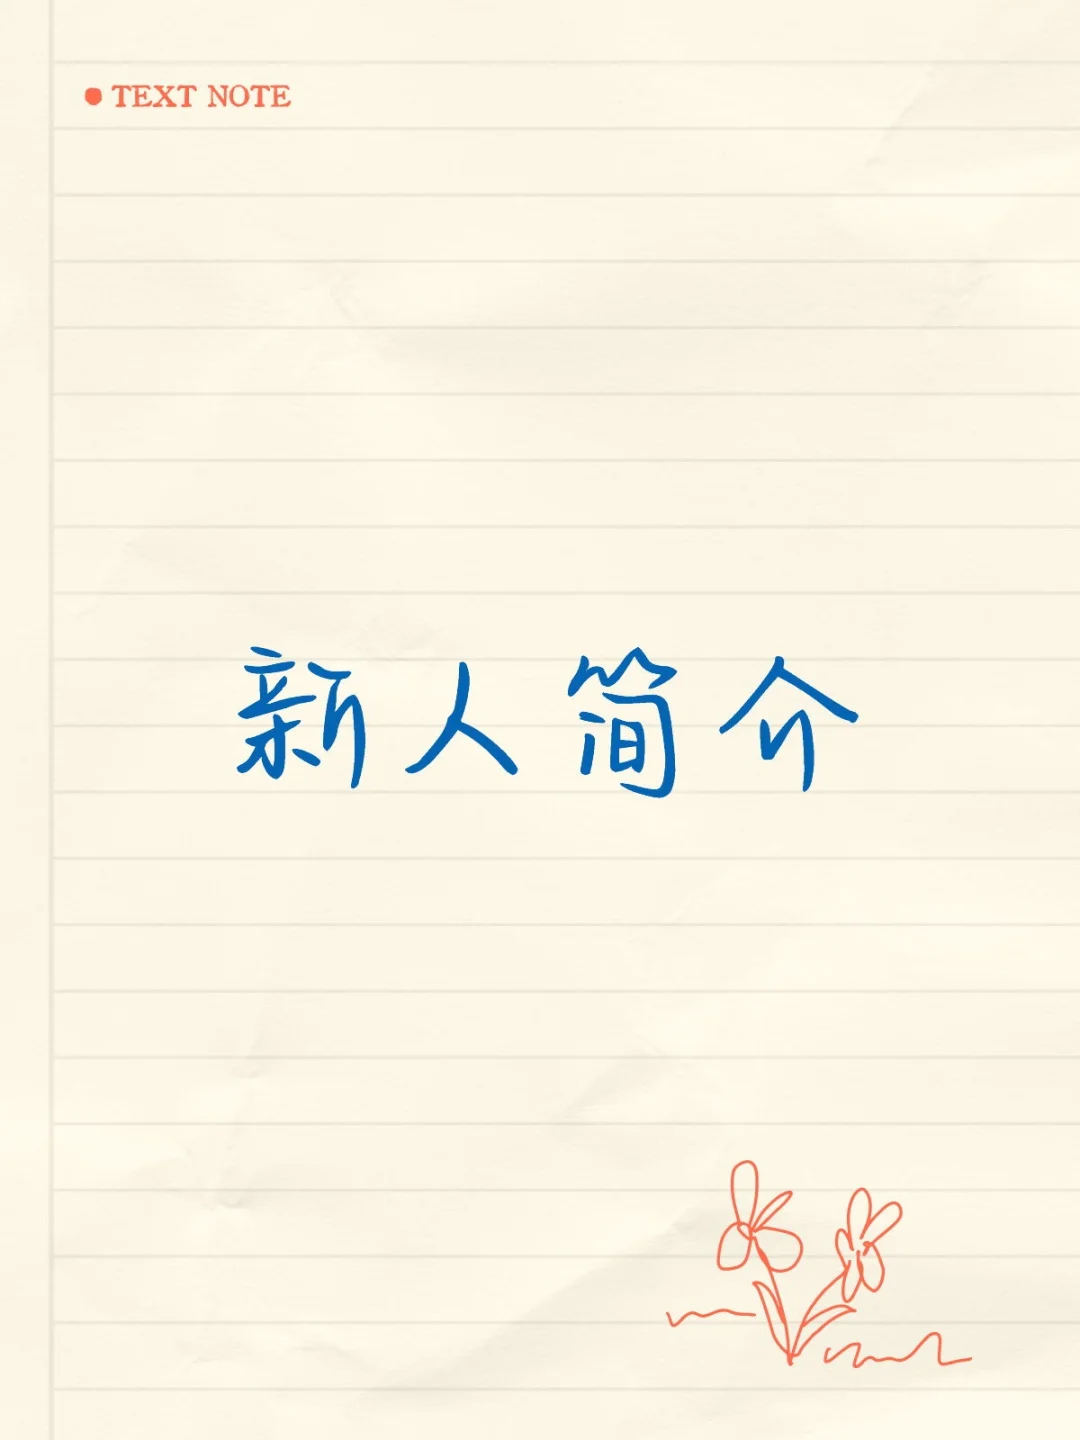 TEXT NOTE
新人简介